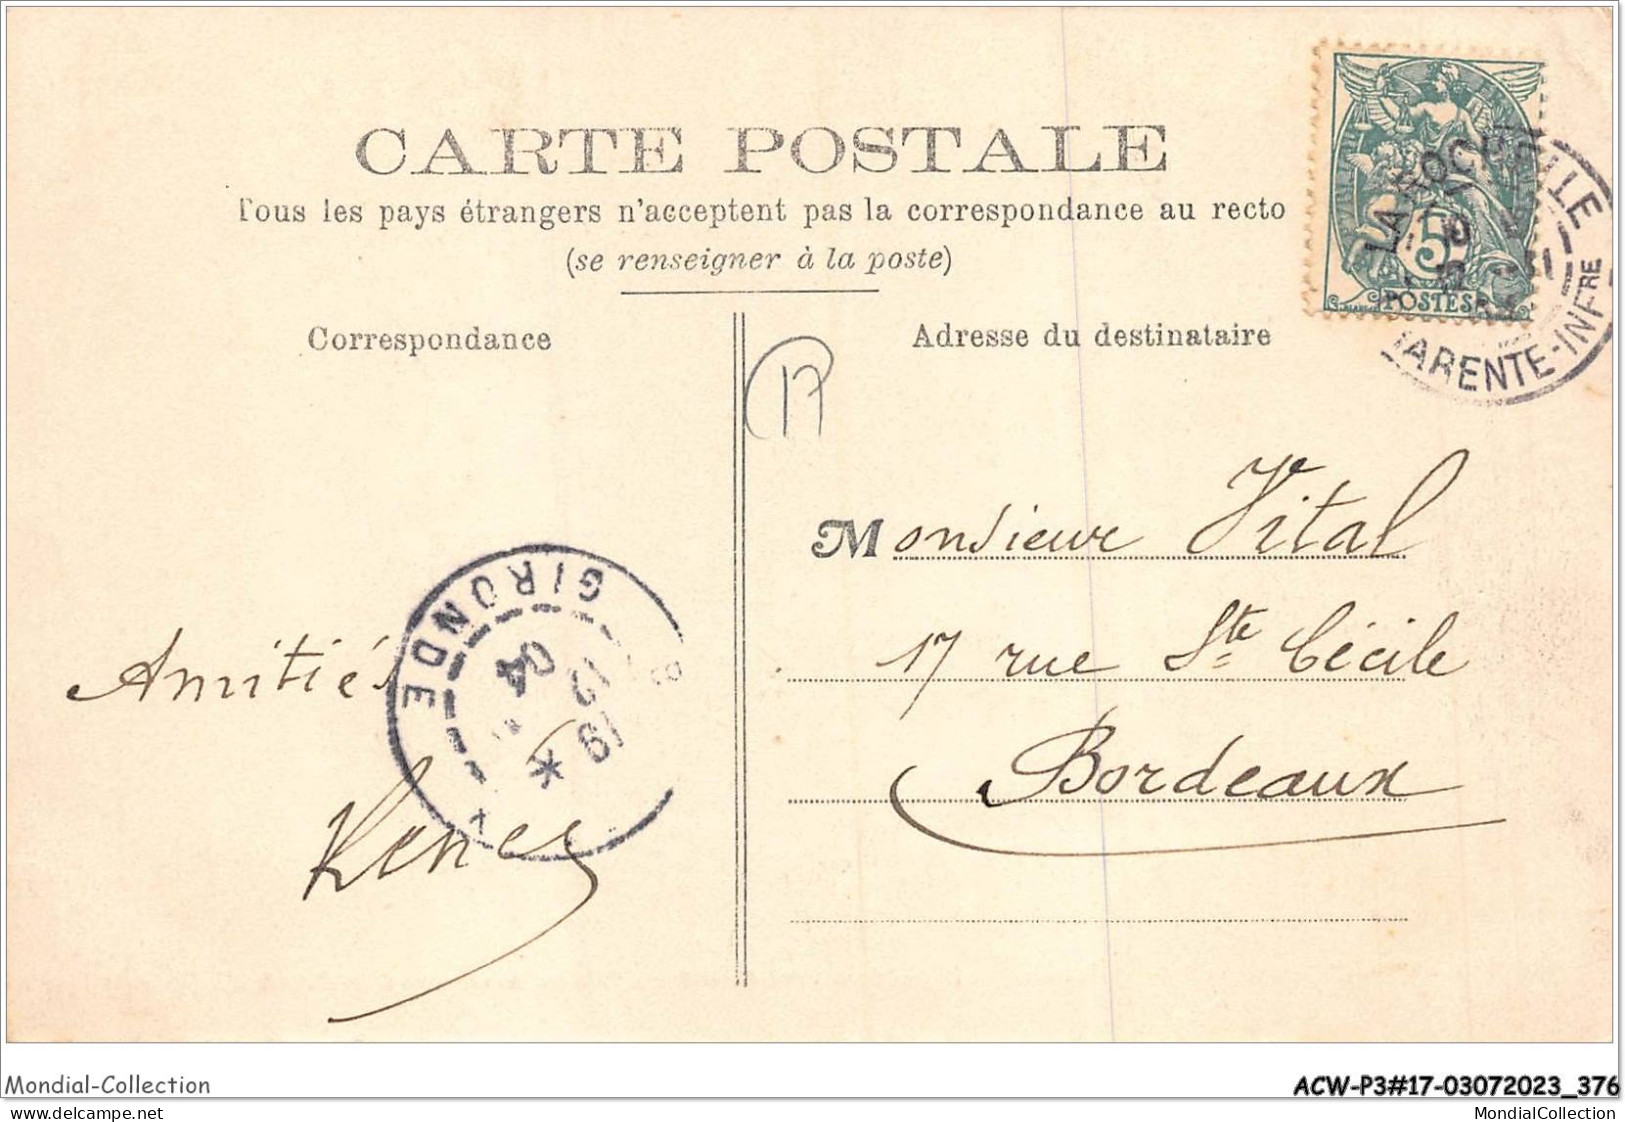 CARTE POSTALE
Tous les pays étrangers n'acceptent pas la correspondance au recto
(se renseigner à la poste)
Correspondance
Adresse du destinataire
17
5
POSTES
LA ROCHELLE
ARENTE-INFRE
Monsieur Vital
17 rue Ste Cécile
Bordeaux
Amitiés
GIRONDE
19
12
04
Mondial-Collection
ACW-P3#17-03072023_376
MondialCollection